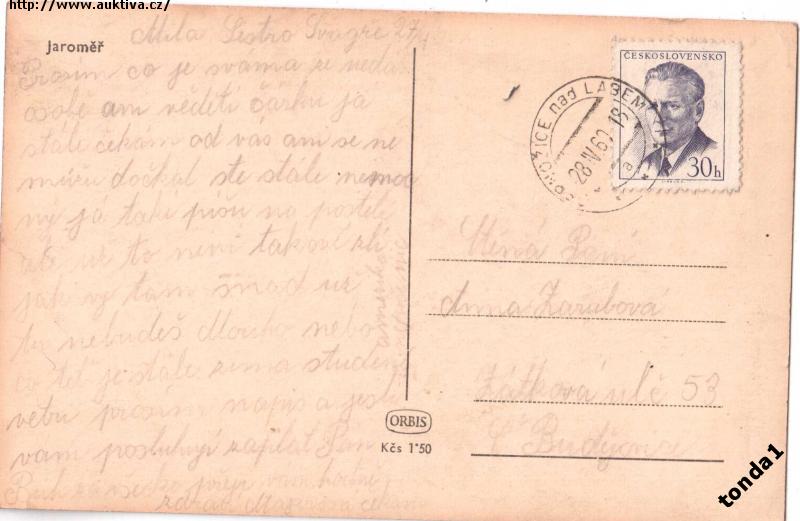 http://www.auktiva.cz/
Jaroměř
Milá Sestro Svagre 27/4
Prosim co je svama ze nedá
sobě am věděti čárku já
stále čekám od vás am se ne
můžu dočkat ste stále nemoc
ny já také píšu na posteli
ale už to není takové zlí
jak vy tam snad už
to nebudeš dlouho nebo
co teť je stále zima studení
větri prosím napiš a jestli
vam posluhují zaplat Pán
Bůh za všecko přeje vam hodně
zdraví
ORBIS
Kčs 1·50
ČESKOSLOVENSKO
30h
nad LABEM
28.IV.60.-18
a
Ctěná Paní
Anna Zarubová
Zátková ulč 53
Č Budějovice
tonda1